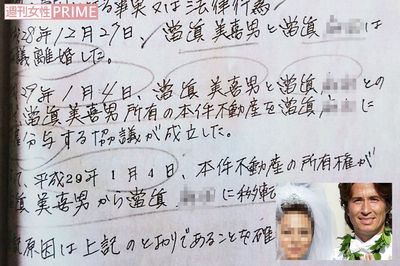 週刊女性PRIME
る事実又は法律行為
28年12月27日、當眞美喜男と當眞 は
議離婚した。
29年1月4日、當眞美喜男と當眞 との
當眞美喜男所有の本件不動産を當眞 に
分与する協議が成立した。
、平成29年1月4日、本件不動産の所有権が
眞美喜男から當眞 に移転
原因は上記のとおりであることを確